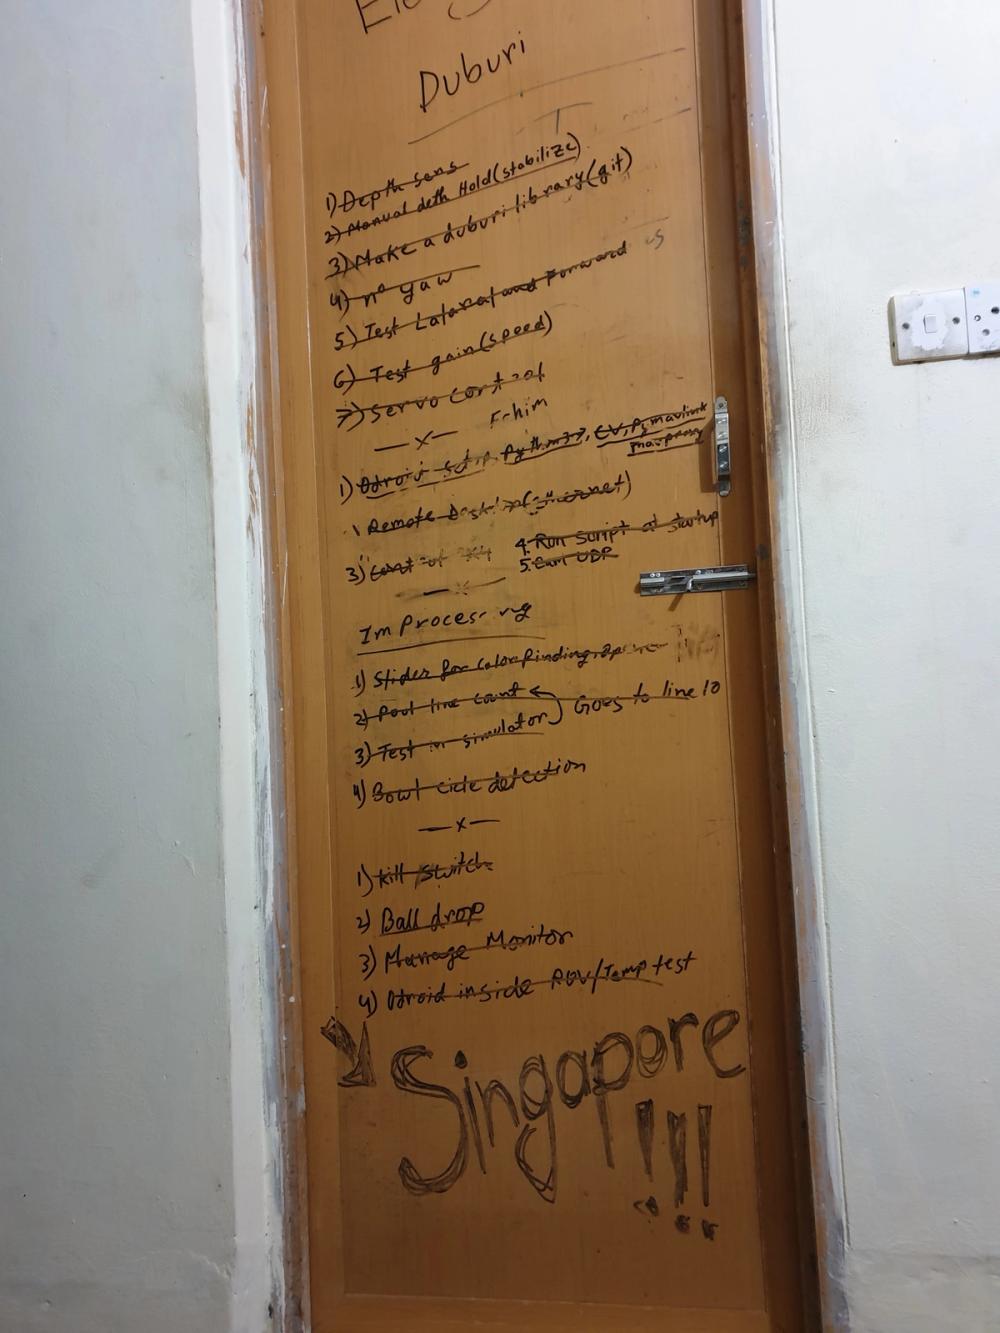 Duburi
1) Depth sens
2) Manual deth Hold (stabilize)
3) Make a duburi library (git)
4) no yaw
5) Test Lateral and Forward
6) Test gain (speed)
7) Servo control
— x — Fahim
1) Odroid setup, Python 3.7, CV, Pymavlink
mavproxy
Remote Desktop (ethernet)
3)
4. Run Script at startup
5. Cam UDP
— x —
Im Processing
1) Slider for color finding
2) Pool line count
3) Test in simulator
Goes to line 10
4) Bowl cicle detection
— x —
1) kill switch
2) Ball drop
3) Manage Monitor
4) Odroid inside ROV/Temp test
Singapore
!!!